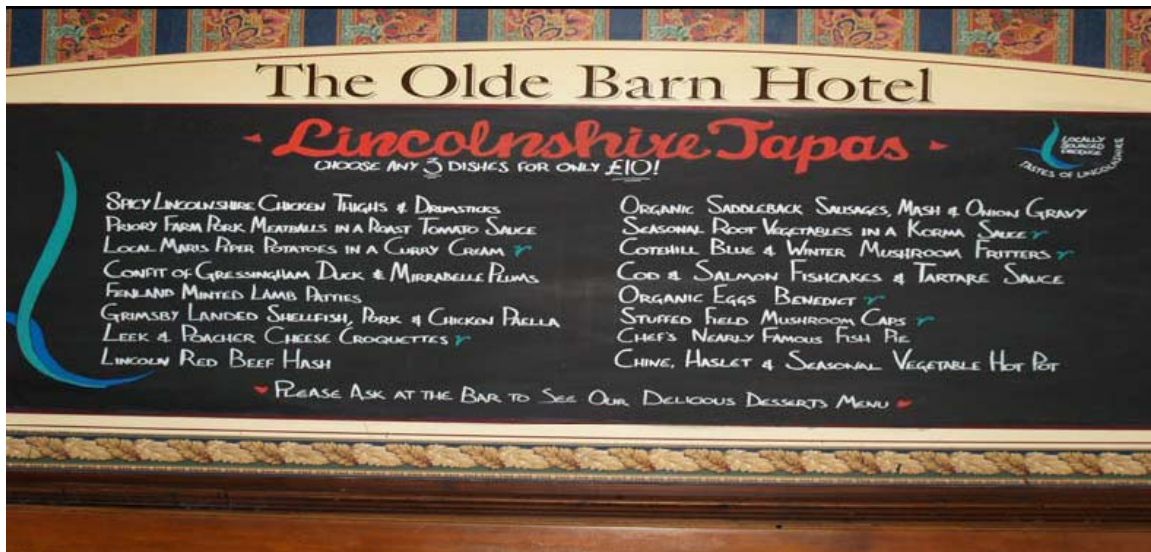 The Olde Barn Hotel
Lincolnshire Tapas
CHOOSE ANY 3 DISHES FOR ONLY £10!
LOCALLY
SOURCED
PRODUCE
TASTES OF LINCOLNSHIRE
SPICY LINCOLNSHIRE CHICKEN THIGHS & DRUMSTICKS
PRIORY FARM PORK MEATBALLS IN A ROAST TOMATO SAUCE
LOCAL MARIS PIPER POTATOES IN A CURRY CREAM V
CONFIT OF GRESSINGHAM DUCK & MIRRABELLE PLUMS
FENLAND MINTED LAMB PATTIES
GRIMSBY LANDED SHELLFISH, PORK & CHICKEN PAELLA
LEEK & POACHER CHEESE CROQUETTES V
LINCOLN RED BEEF HASH
ORGANIC SADDLEBACK SAUSAGES, MASH & ONION GRAVY
SEASONAL ROOT VEGETABLES IN A KORMA SAUCE V
COTEHILL BLUE & WINTER MUSHROOM FRITTERS V
COD & SALMON FISHCAKES & TARTARE SAUCE
ORGANIC EGGS BENEDICT V
STUFFED FIELD MUSHROOM CAPS V
CHEF'S NEARLY FAMOUS FISH PIE
CHINE, HASLET & SEASONAL VEGETABLE HOT POT
PLEASE ASK AT THE BAR TO SEE OUR DELICIOUS DESSERTS MENU